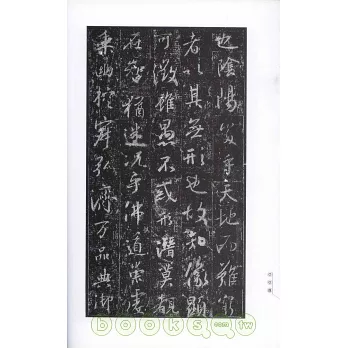 也陰陽處乎天地而難窮
者以其無形也故知像顯
可徵雖愚不惑形潛莫覩
在智猶迷況乎佛道崇虛
乘幽控寂弘濟万品典御
books.com.tw